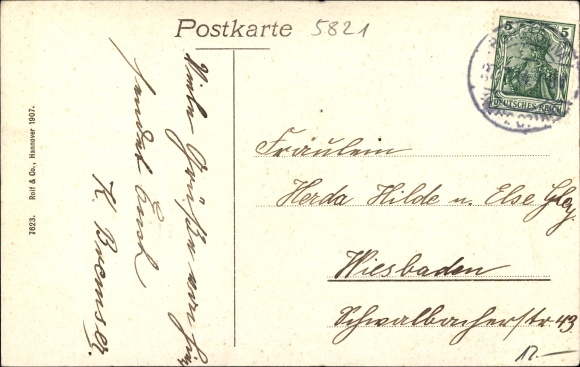 Postkarte
5821
5 5
DEUTSCHES REICH
Viele Grüße von hier
sendet Euch
K. Bremser.
Fräulein
Herda Hilde u. Else Gley
Wiesbaden
Schwalbacherstr 43
12.—
7623. Rolf & Co., Hannover 1907.